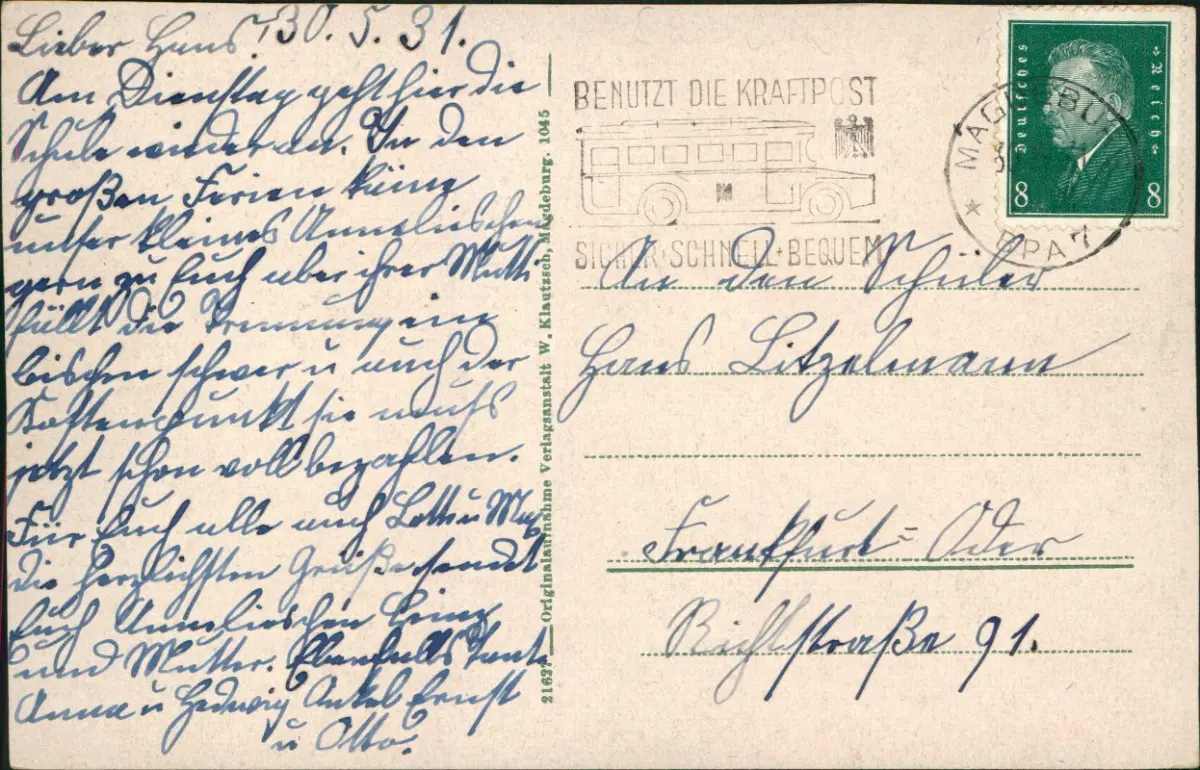 Lieber Hans, 30.5.31.
Am Dienstag geht hier die
Schule wieder an. In den
großen Ferien käme
unser kleines Anneliеschen
gern zu Euch aber ihrer Mutti
fällt die Trennung ein
bischen schwer u auch der
Kostenpunkt sie muſs
jetzt schon voll bezahlen.
Für Euch alle auch Lotte u
die herzlichsten Grüße sendet
Euch Annelieschen Heinz
und Mutter. Ebenfalls Tante
Anna u Hedwig Onkel Ernst
u Otto.
21627 Originalaufnahme Verlagsanstalt W. Klautzsch, Magdeburg. 1045
BENUTZT DIE KRAFTPOST
SICHER·SCHNELL·BEQUEM
Deutsches Reich
8 8
MAGDEBU
* PA 7
An den Schüler
Hans Litzelmann
Frankfurt-Oder
Richtstraße 91.